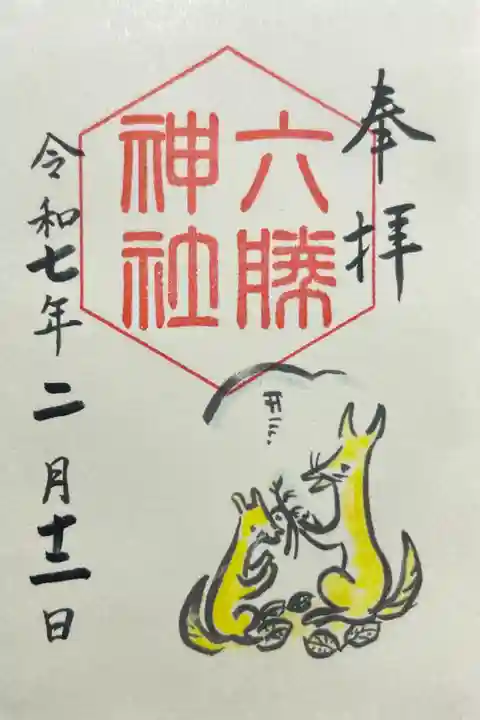 奉拝
六勝
神社
令和七年二月十一日